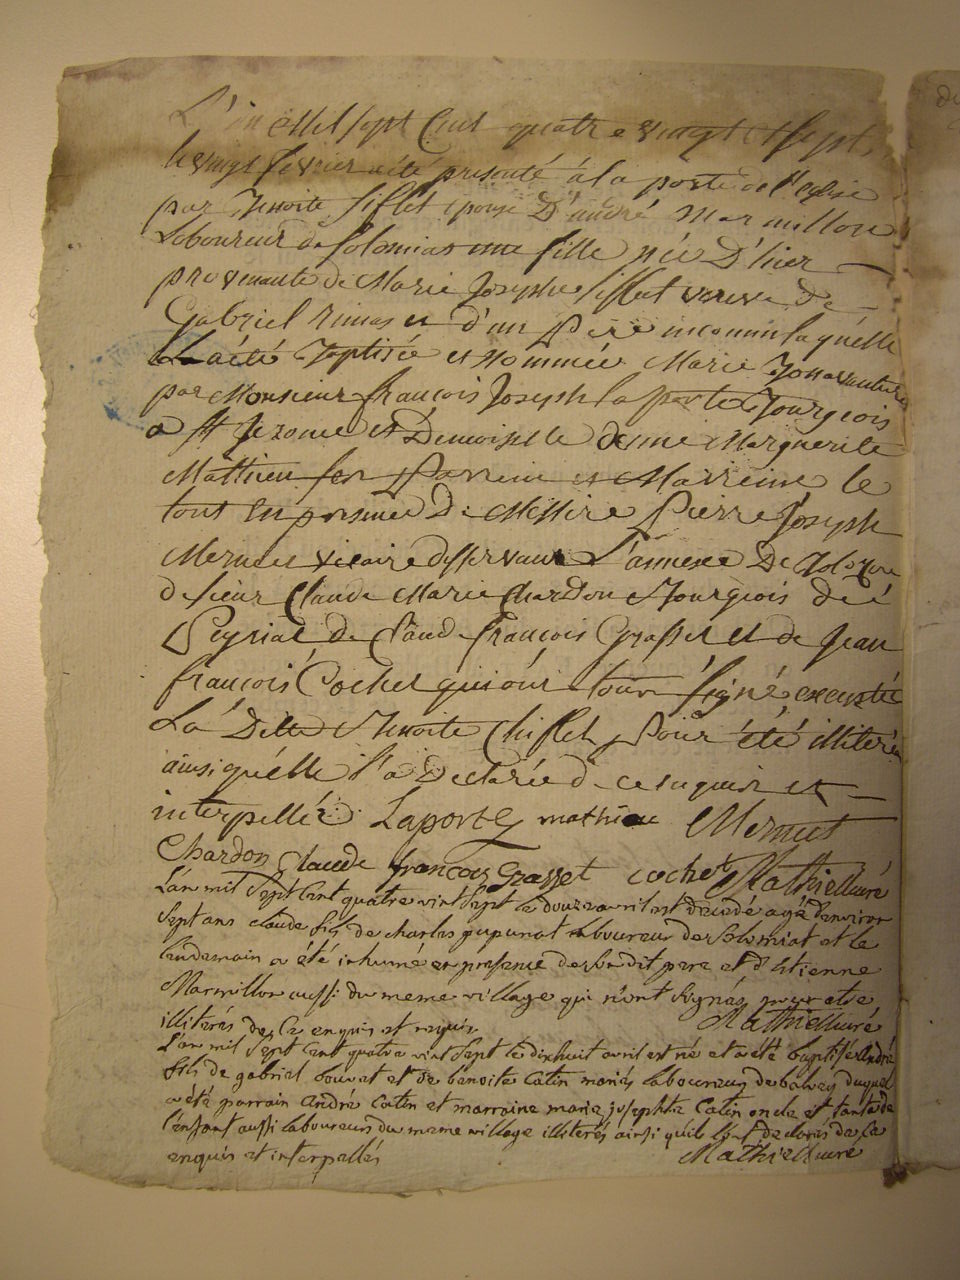 L'an Mil sept Cent quatre vingt et sept,
le vingt fevrier a été presenté à la porte de l'eglise
par Benoite Siflet epouse D'andré Marmillon
Laboureur de Solomiat une fille née D'hier
provenante de Marie Josephe Siflet veuve de
Gabriel et d'un Pere inconnu laquelle
a été Baptisée et Nommée Marie Bonnaventure
par Monsieur françois Joseph la porte Bourgeois
a st Jerome et Demoiselle Marguerite
Mathieu ses Parrein et Mareine le
tout En presence De Messire Pierre Joseph
Mermet vicaire desservant L'annexe De
de sieur Claude Marie Chardon Bourgeois de
Leyriat de Claude françois Grasset et de Jean
françois Cochet qui ont tous signé excepté
La Ditte Benoite Chiflet Pour été illiterée
ainsi quélle l'a Declarée de ce enquise et
interpellée Laporte mathieu Mermet
Chardon Claude françois Grasset cochet Mathieu curé
L'an mil Sept Cent quatre vint Sept le douze avril est decedé agé d'environ
Sept ans claude fils de charles laboureur de Solomiat et le
lendemain a été inhumé en présence de son dit pere et d'Etienne
Marmillon aussi du meme village qui n'ont Signés pour etre
illiterés de Ce enquis et requis Mathieu curé
L'an mil Sept Cent quatre vint Sept le dixhuit avril est né et a été baptisé André
fils de gabriel bouvet et de benoite Catin mariés laboureurs de duquel
a été parrain André Catin et marraine marie josephte Catin oncle et tante de
l'enfant aussi laboureurs du meme village illiterés ainsi quils l'ont declarés de Ce
enquis et interpellés Mathieu curé